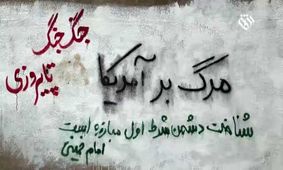 جنگ جنگ
تا پیروزی
مرگ بر آمریکا
شناخت دشمن شرط اول مبارزه است
امام خمینی